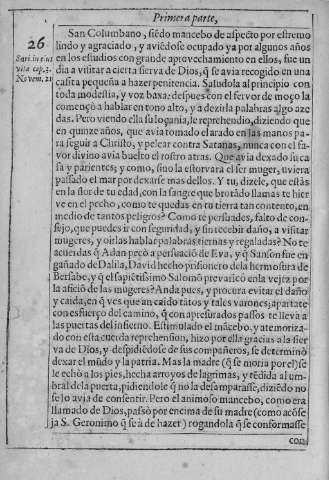 Primera parte,
26
Suri. in eius
vita cap. 3.
Novem. 21
San Columbano, siẽdo mancebo de aspecto por estremo
lindo y agraciado, y aviẽdose ocupado ya por algunos años
en los estudios con grande aprovechamiento en ellos, fue un
dia a visitar a cierta sierva de Dios, q̃ se avia recogido en una
casita pequeña a hazer penitencia. Saludola al principio con
toda modestia, y voz baxa: despues con el fervor de moço la
començò a hablar en tono alto, y a dezirla palabras algo aze
das. Pero viendo ella su loçania, le reprehendio, diziendo que
en quinze años, que avia tomado el arado en las manos pa-
ra seguir a Christo, y pelear contra Satanas, nunca con el fa-
vor divino avia buelto el rostro atras. Que avia dexado su ca
sa y parientes; y como, sino la estorvara el ser muger, uviera
passado el mar por dexarse mas dellos. Y tu, dizele, que estàs
en la flor de tu edad, con la sangre que brotãdo llamas te hier
ve en el pecho, como te quedas en tu tierra tan contento, en
medio de tantos peligros? Como te persuades, falto de con-
sejo, que puedes ir con seguridad, y sin recebir daño, a visitar
mugeres, y oirlas hablar palabras tiernas y regaladas? No te
acuerdas q̃ Adan pecò a persuasiõ de Eva, y q̃ Sanson fue en
gañado de Dalila, David hecho prisionero de la hermosura de
Bersabe, y q̃ el sapiẽtissimo Salomõ prevaricò en la vejez por
la aficiõ de las mugeres? Anda pues, y procura evitar el daño
y caida, en q̃ ves que an caido tãtos y tales varones; apartate
con esfuerço del camino, q̃ con apresurados passos te lleva a
las puertas del infierno. Estimulado el mãcebo, y atemoriza-
do con esta cuerda reprehension, hizo por ella gracias a la sier
va de Dios, y despidiẽdose de sus compañeros, se determinò
dexar el mũdo y la patria. Mas la madre (q̃ se moria por el) se
le echò a los pies, hecha arroyos de lagrimas, y tẽdida al um-
bral de la puerta, pidiendole q̃ no la desamparasse, diziẽdo no
se lo avia de consentir. Pero el animoso mancebo, como era
llamado de Dios, passò por encima de su madre (como acõse
ja S. Geronimo q̃ se à de hazer) rogandola q̃ se conformasse
con